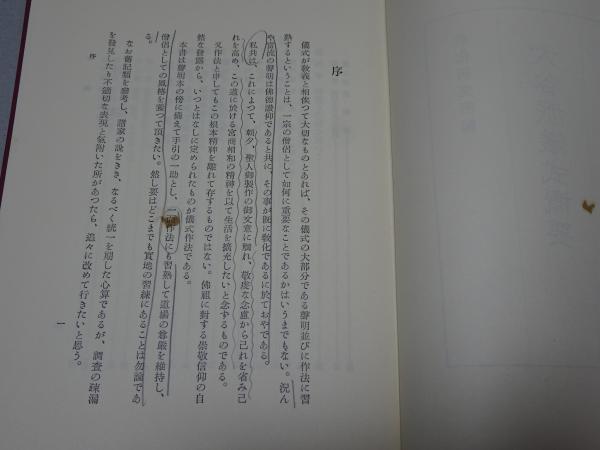 序
儀式が教義と相俟つて大切なものとあれば、その儀式の大部分である聲明並びに作法に習
熟するということは、一宗の僧侶として如何に重要なことであるかはいうまでもない。況ん
や當流の聲明は佛德讃仰であると共に、その事が既に敎化であるに於ておやである。
私共は、これによつて、朝夕、聖人御製作の御文意に順れ、敬虔な念慮から己れを省み己
れを高め、この道に於ける宮商相和の精神を以て生活を擴充したいと念ずるものである。
又作法と申してもこの根本精神を離れて存するものではない。佛祖に對する崇敬信仰の自
然な發露から、いつとはなしに定められたものが儀式作法である。
本書は聲明本の傍に備えて手引の一助とし、一面作法にも習熟して道場の尊嚴を維持し、
僧侶としての風格を養つて頂きたい。然し要はどこまでも實地の習練にあることは勿論であ
る。
なお舊記類を參考し、諸家の說をきき、なるべく統一を期した心算であるが、調査の疎漏
を發見したり不適切な表現と氣附いた所があつたら、追々に改めて行きたいと思う。
序
一